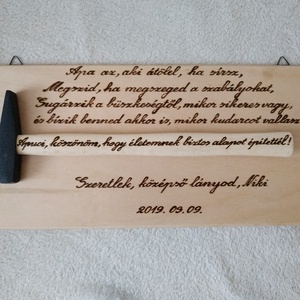 Apa az, aki átölel, ha sírsz,
Megszid, ha megszeged a szabályokat,
Sugárzik a büszkeségtől, mikor sikeres vagy,
és bízik benned akkor is, mikor kudarcot vallasz
Apuci, köszönöm, hogy életemnek biztos alapot építettél!
Szeretlek, középső lányod, Niki
2019. 09. 09.